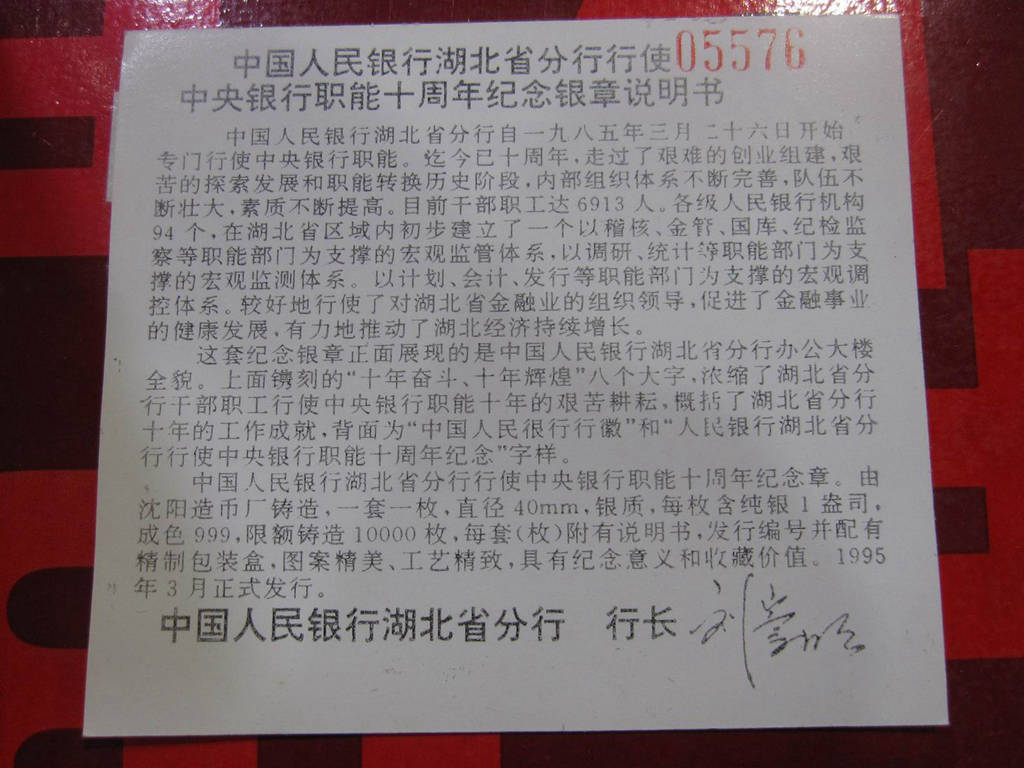 中国人民银行湖北省分行行使05576
中央银行职能十周年纪念银章说明书
中国人民银行湖北省分行自一九八五年三月二十六日开始
专门行使中央银行职能。迄今已十周年,走过了艰难的创业组建,艰
苦的探索发展和职能转换历史阶段,内部组织体系不断完善,队伍不
断壮大,素质不断提高。目前干部职工达6913人。各级人民银行机构
94个,在湖北省区域内初步建立了一个以稽核、金管、国库、纪检监
察等职能部门为支撑的宏观监管体系,以调研、统计等职能部门为支
撑的宏观监测体系。以计划、会计、发行等职能部门为支撑的宏观调
控体系。较好地行使了对湖北省金融业的组织领导,促进了金融事业
的健康发展,有力地推动了湖北经济持续增长。
这套纪念银章正面展现的是中国人民银行湖北省分行办公大楼
全貌。上面镌刻的“十年奋斗、十年辉煌”八个大字,浓缩了湖北省分
行干部职工行使中央银行职能十年的艰苦耕耘,概括了湖北省分行
十年的工作成就,背面为“中国人民很行行徽”和“人民银行湖北省分
行行使中央银行职能十周年纪念”字样。
中国人民银行湖北省分行行使中央银行职能十周年纪念章。由
沈阳造币厂铸造,一套一枚,直径40mm,银质,每枚含纯银1盎司,
成色999,限额铸造10000枚,每套(枚)附有说明书,发行编号并配有
精制包装盒,图案精美、工艺精致,具有纪念意义和收藏价值。1995
年3月正式发行。
中国人民银行湖北省分行 行长